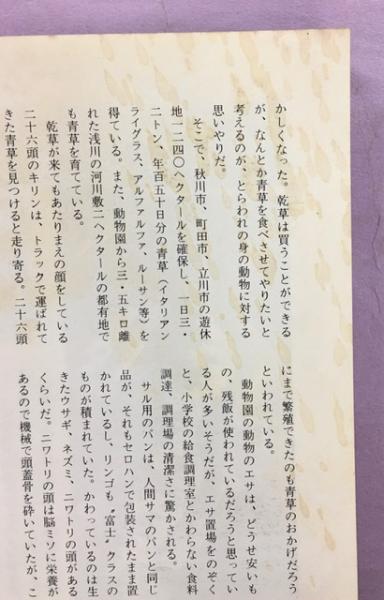 かしくなった。乾草は買うことができる
が、なんとか青草を食べさせてやりたいと
考えるのが、とらわれの身の動物に対する
思いやりだ。
そこで、秋川市、町田市、立川市の遊休
地一二四〇ヘクタールを確保し、一日三・
二トン、年百五十日分の青草(イタリアン
ライグラス、アルファルファ、ルーサン等)を
得ている。また、動物園から三・五キロ離
れた浅川の河川敷二ヘクタールの都有地で
も青草を育てている。
乾草が来てもあたりまえの顔をしている
二十六頭のキリンは、トラックで運ばれて
きた青草を見つけると走り寄る。二十六頭
にまで繁殖できたのも青草のおかげだろう
といわれている。
動物園の動物のエサは、どうせ安いも
の、残飯が使われているだろうと思ってい
る人が多いそうだが、エサ置場をのぞく
と、小学校の給食調理室とかわらない食料
調達、調理場の清潔さに驚かされる。
サル用のパンは、人間サマのパンと同じ
品が、それもセロハンで包装されたまま置
かれているし、リンゴも〝富士〟クラスの
ものが積まれていた。かわっているのは生
きたウサギ、ネズミ、ニワトリの頭がある
くらいだ。ニワトリの頭は脳ミソに栄養が
あるので機械で頭蓋骨を砕いていたが、こ